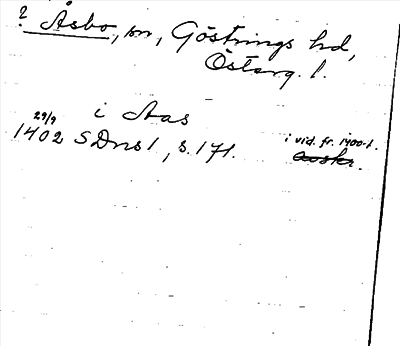 ? Åsbo, sn, Göstrings hd,
Österg. l.
i Aas
29/9
1402 SDns 1, s. 171.
i vid. fr. 1400-t.